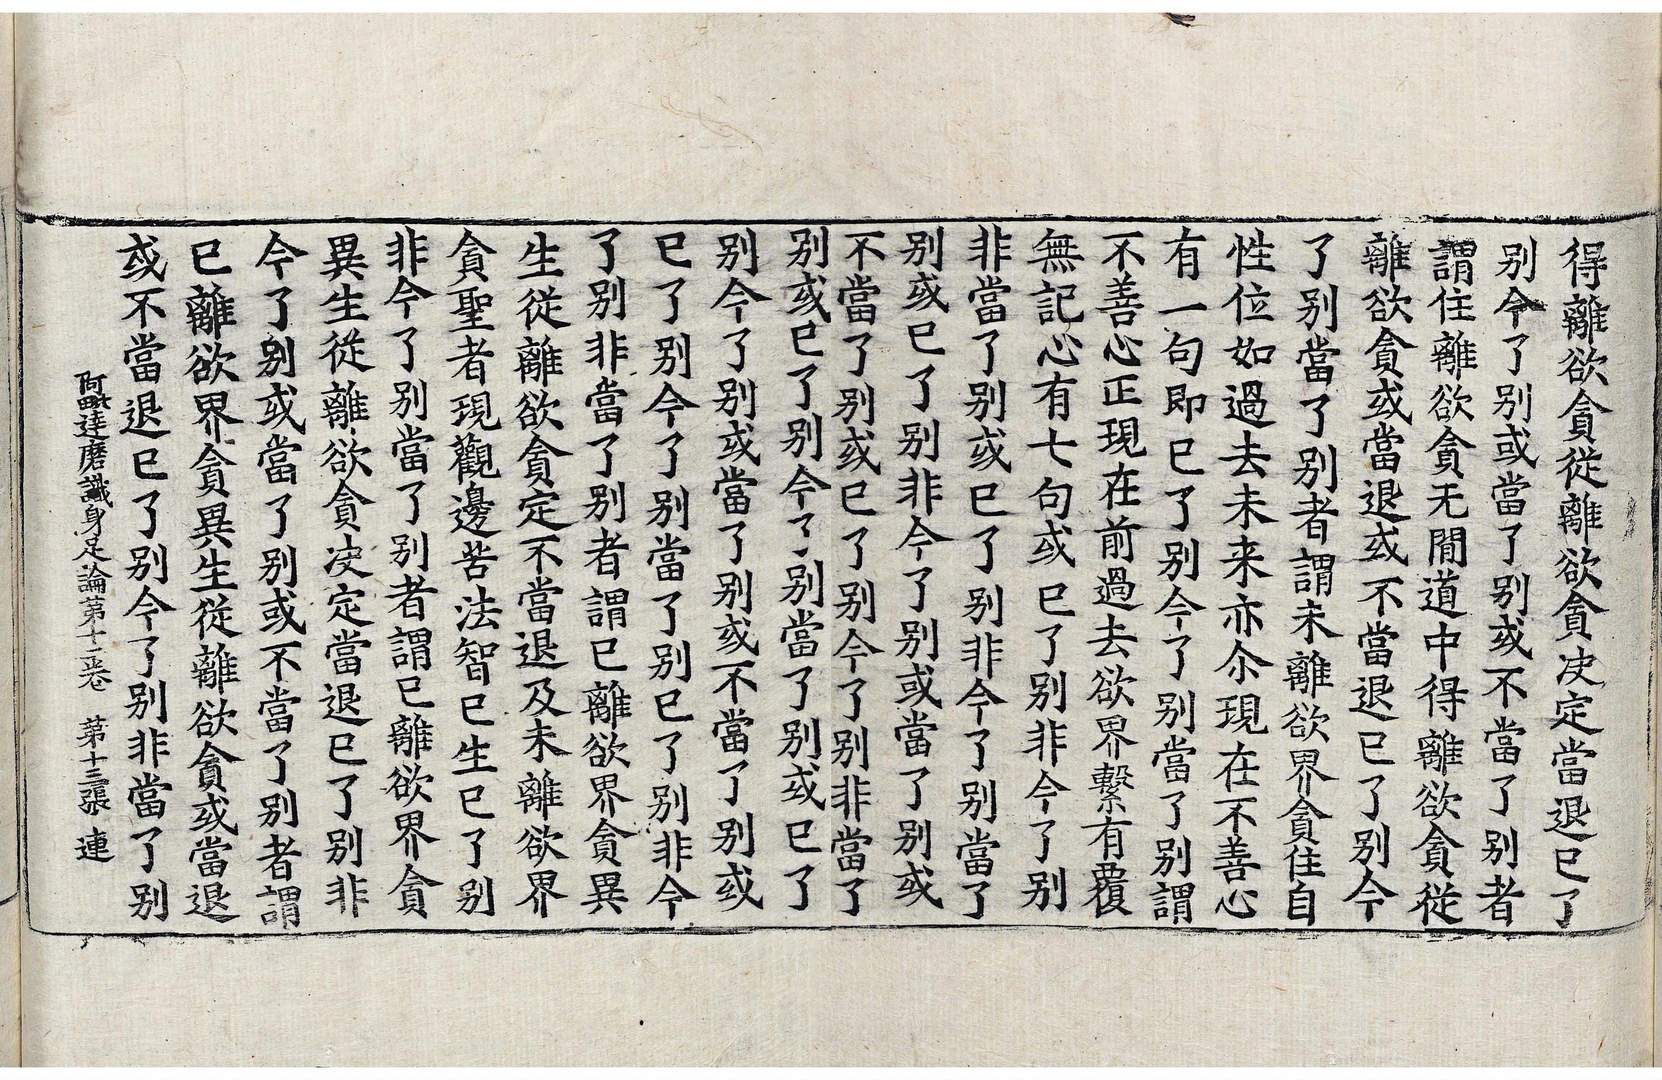 得離欲貪從離欲貪决定當退已了
别今了别或當了别或不當了别者
謂住離欲貪无閒道中得離欲貪從
離欲貪或當退或不當退已了别今
了别當了别者謂未離欲界貪住自
性位如過去未来亦尒現在不善心
有一句即已了别今了别當了别謂
不善心正現在前過去欲界繫有覆
無記心有七句或已了别非今了别
非當了别或已了别非今了别當了
别或已了别非今了别或當了别或
不當了别或已了别今了别非當了
别或已了别今了别當了别或已了
别今了别或當了别或不當了别或
已了别今了别當了别已了别非今
了别非當了别者謂已離欲界貪異
生從離欲貪定不當退及未離欲界
貪聖者現觀邊苦法智已生已了别
非今了别當了别者謂已離欲界貪
異生從離欲貪决定當退已了别非
今了别或當了别或不當了别者謂
已離欲界貪異生從離欲貪或當退
或不當退已了别今了别非當了别
阿毗達磨識身足論第十二卷 第十三張 連